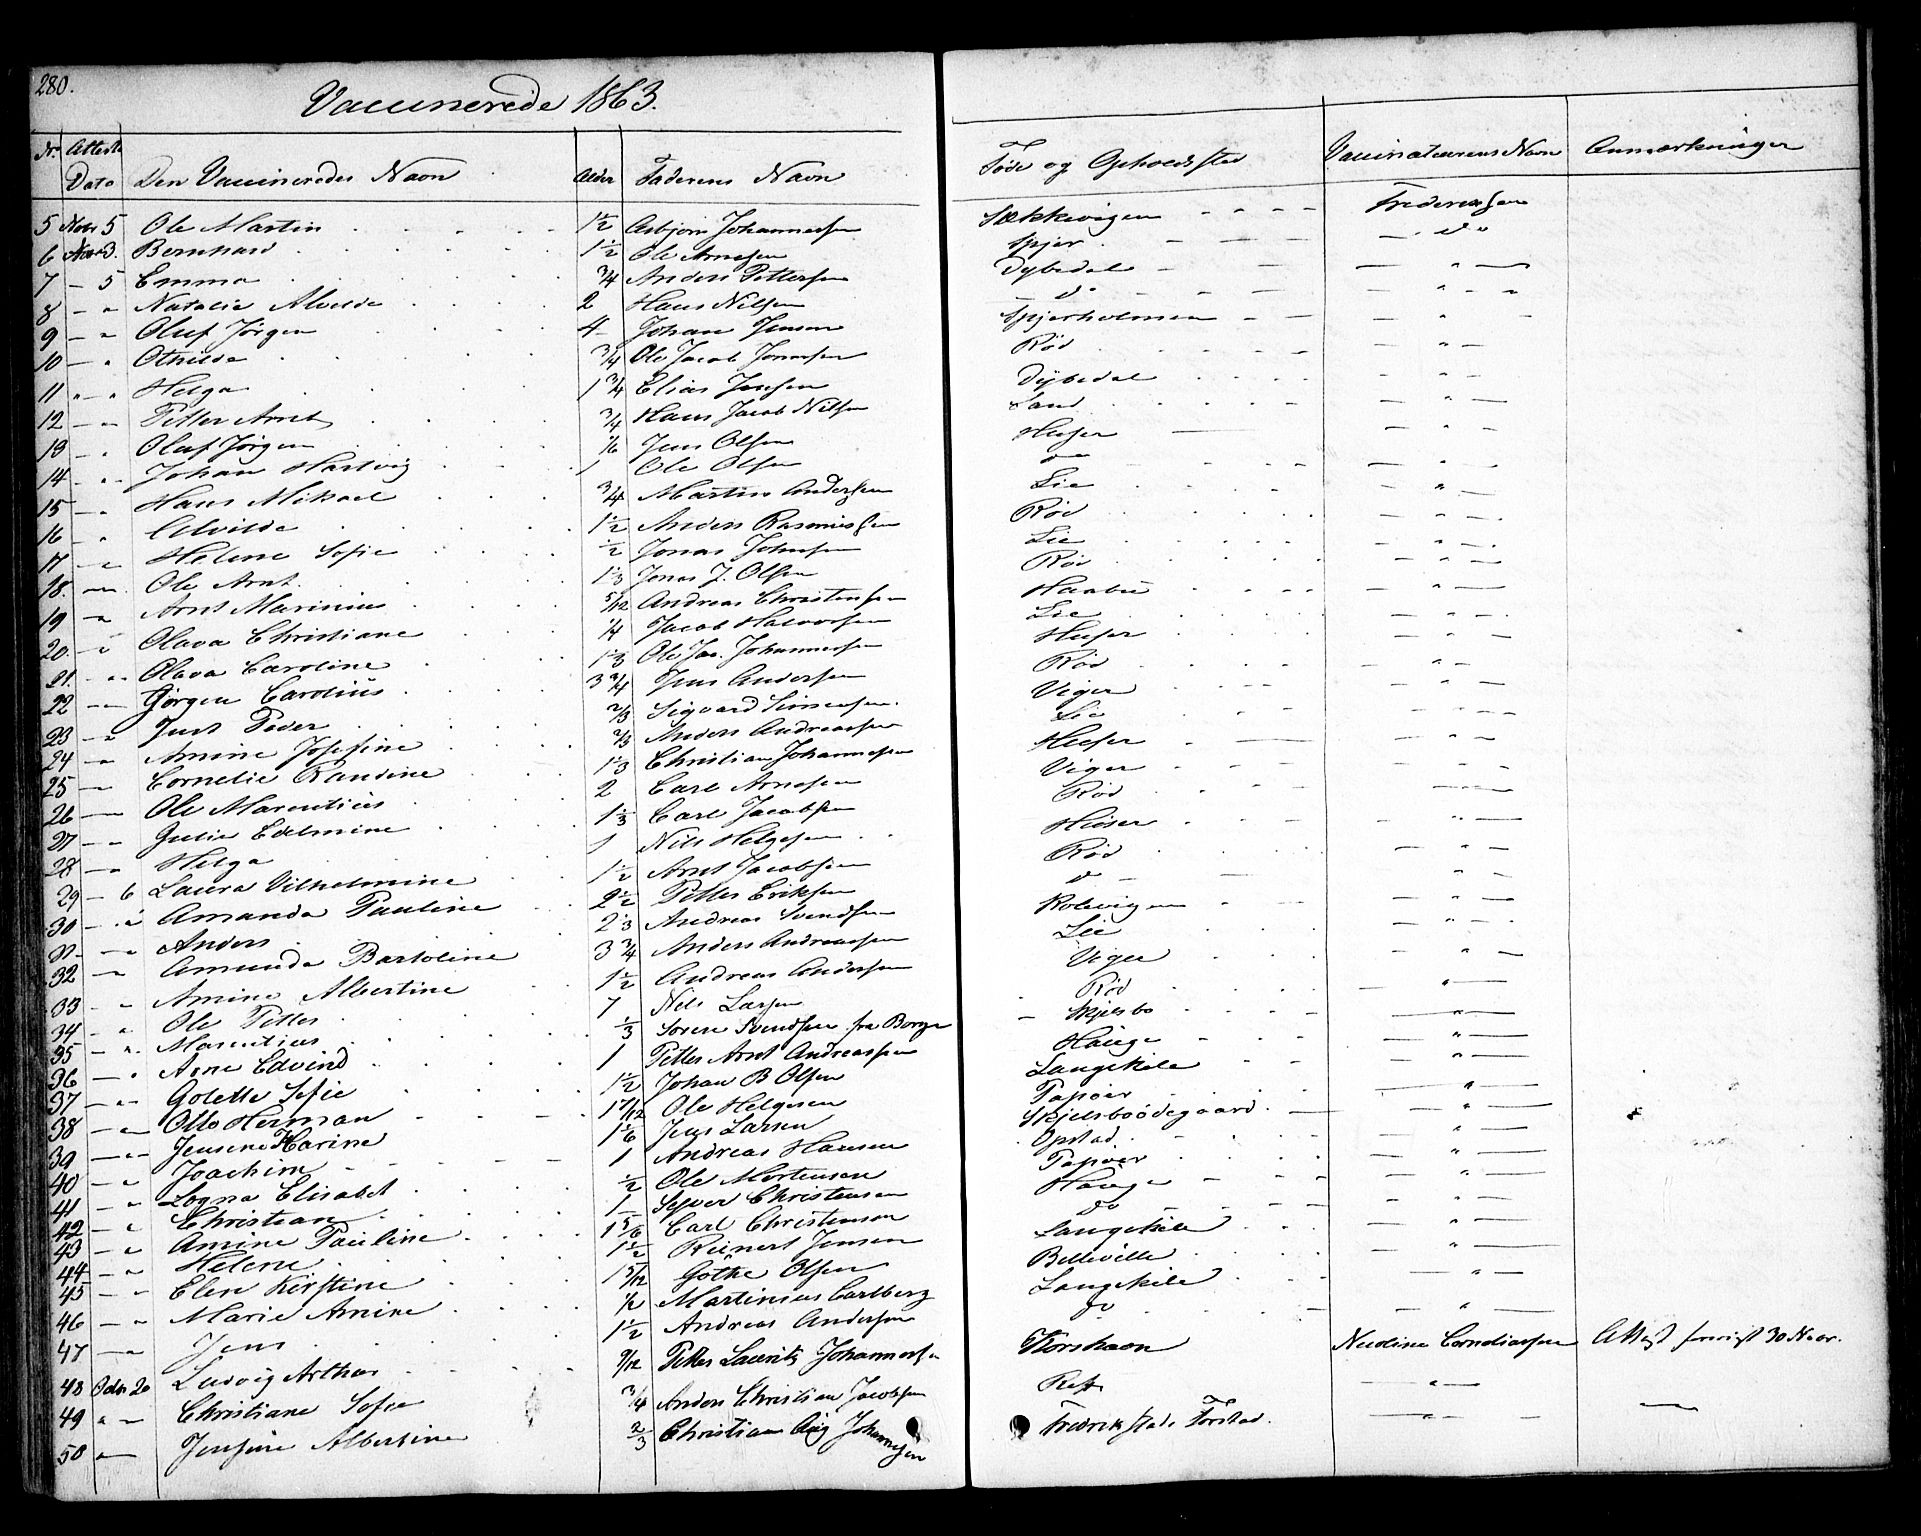 280.
Vaccinerede 1863.
Nr. Attests Dato Den Vaccineredes Navn Alder Faderens Navn Føde og Opholdssted Vaccinateurens Navn Anmærkninger
5 5 Ole Martin 1 1/2 Asbjørn Johannessen Stokkevigen Frederiksen
6 3. Bernhard 1 1/2 Ole Arnesen Spjær — do
7 — 5 Emma 3/4 Anders Pettersen Dybedal — " —
8 — " Natalia Alvilde 2 Hans Nilsen do — " —
9 — " Oluf Jørgen 4 Johan Jensen Spjærholmen — " —
10 — " Othilde 3/4 Ole Jacob Rød — " —
11 " — " Helga 1 3/4 Elias Dybedal — " —
12 — " Petter Arnt 3/4 Hans Jacob Nilsen Sand — " —
13 — " Oluf Jørgen 1/6 Jens Olsen Huser — " —
14 — " Johan Hartvig 1 Ole Olsen do — " —
15 — " Hans Mikael 3/4 Martin Andersen Lie — " —
16 — " Alvilde 1 1/2 Anders Rasmussen Rød — " —
17 — " Helene Sofie 1/2 Jonas Johnsen Lie — " —
18. — " Ole Arnt 1 1/3 Jonas J. Olsen Rød — " —
19 — " Arnt Marinius 5/12 Andreas Christensen Haabu — " —
20. — " Olava Christiane 1/4 Jacob Halvorsen Lie — " —
21. — " Olava Caroline 1 1/3 Ole Jac. Johannessen Huser — " —
22 — " Jørgen Carolius 3 3/4 Jens Andersen Rød — " —
23 — " Just Peder 2/3 Sigvard Simensen. Viger — " —
24 — " Amine Josefine 2/3 Anders Andreassen Lie — " —
25 — " Cornelie Randine 1 1/3 Christian Johannessen Huser — " —
26 — Ole Marentius 2 Carl Arnesen Viger — " —
27 — " Julie Edelmine 1 1/3 Carl Jacobsen Rød —
28 — " Helga 1 Nils Helgesen Huser — " —
29 — 6 Laura Vilhelmine 1 1/2 Arnt Jacobsen Rød — " —
30 — " Amanda Pauline 2 1/2 Petter Eriksen do — " —
31 — " Anders 2 1/3 Andreas Svendsen Rolevigen — " —
32 — " Amunda Bartoline 3 3/4 Anders Andreassen Lie — " —
33 — " Amine Albertine 1 1/2 Andreas Andersen Viger — " —
34 — " Ole Petter 7 Nils Larsen Rød — " —
35 — " Marentius 1/3 Søren Svendsen fra Borge Skjelsbo — " —
36 — " Arne Edvind 1 Petter Arnt Andreassen Hauge — " —
37 — " Golette Sofie 1 1/2 Johan B Olsen Langekile — " —
38 — " Otto Herman 1 7/12 Ole Helgesen Papper — " —
39 — " Jensine Karine 1 1/6 Jens Larsen Skjelsboødegaard — " —
40 — " Joachim 1 Andreas Hansen Opstad — " —
41 — " Logna Elisabet 1/2 Ole Mortensen Papper — " —
42 — " Christian 1 Syver Christensen Hauge — " —
43 — " Amine Pauline 1 5/6 Carl Christensen do — " —
44 — " Helene 1 1/2 Reinert Jensen Langekile — " —
45 — " Elen Kirstine 1 5/12 Göthe Olsen Belleville — " —
46 — " Marie Amine 1/2 Martinius Carlberg Langekile — " —
47 — " Jens 1 1/2 Andreas Andersen do — " —
48 20 Ludvig Arthur 9/12 Petter Lauritz Johannessen Corneliussen Attest 30 Novr.
49 " — Christiane Sofie 3/4 Anders Christian Jacobsen — " —
50 " — Jensine Albertine 2/3 Christian Aug Johannessen Fredrikstads Forstad. — " — —